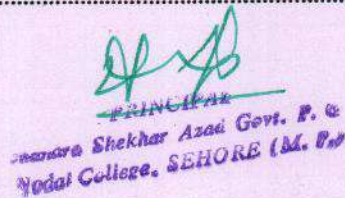 PRINCIPAL
Shekhar Azad Govt. P. G
Nodal College, SEHORE (M. P.)